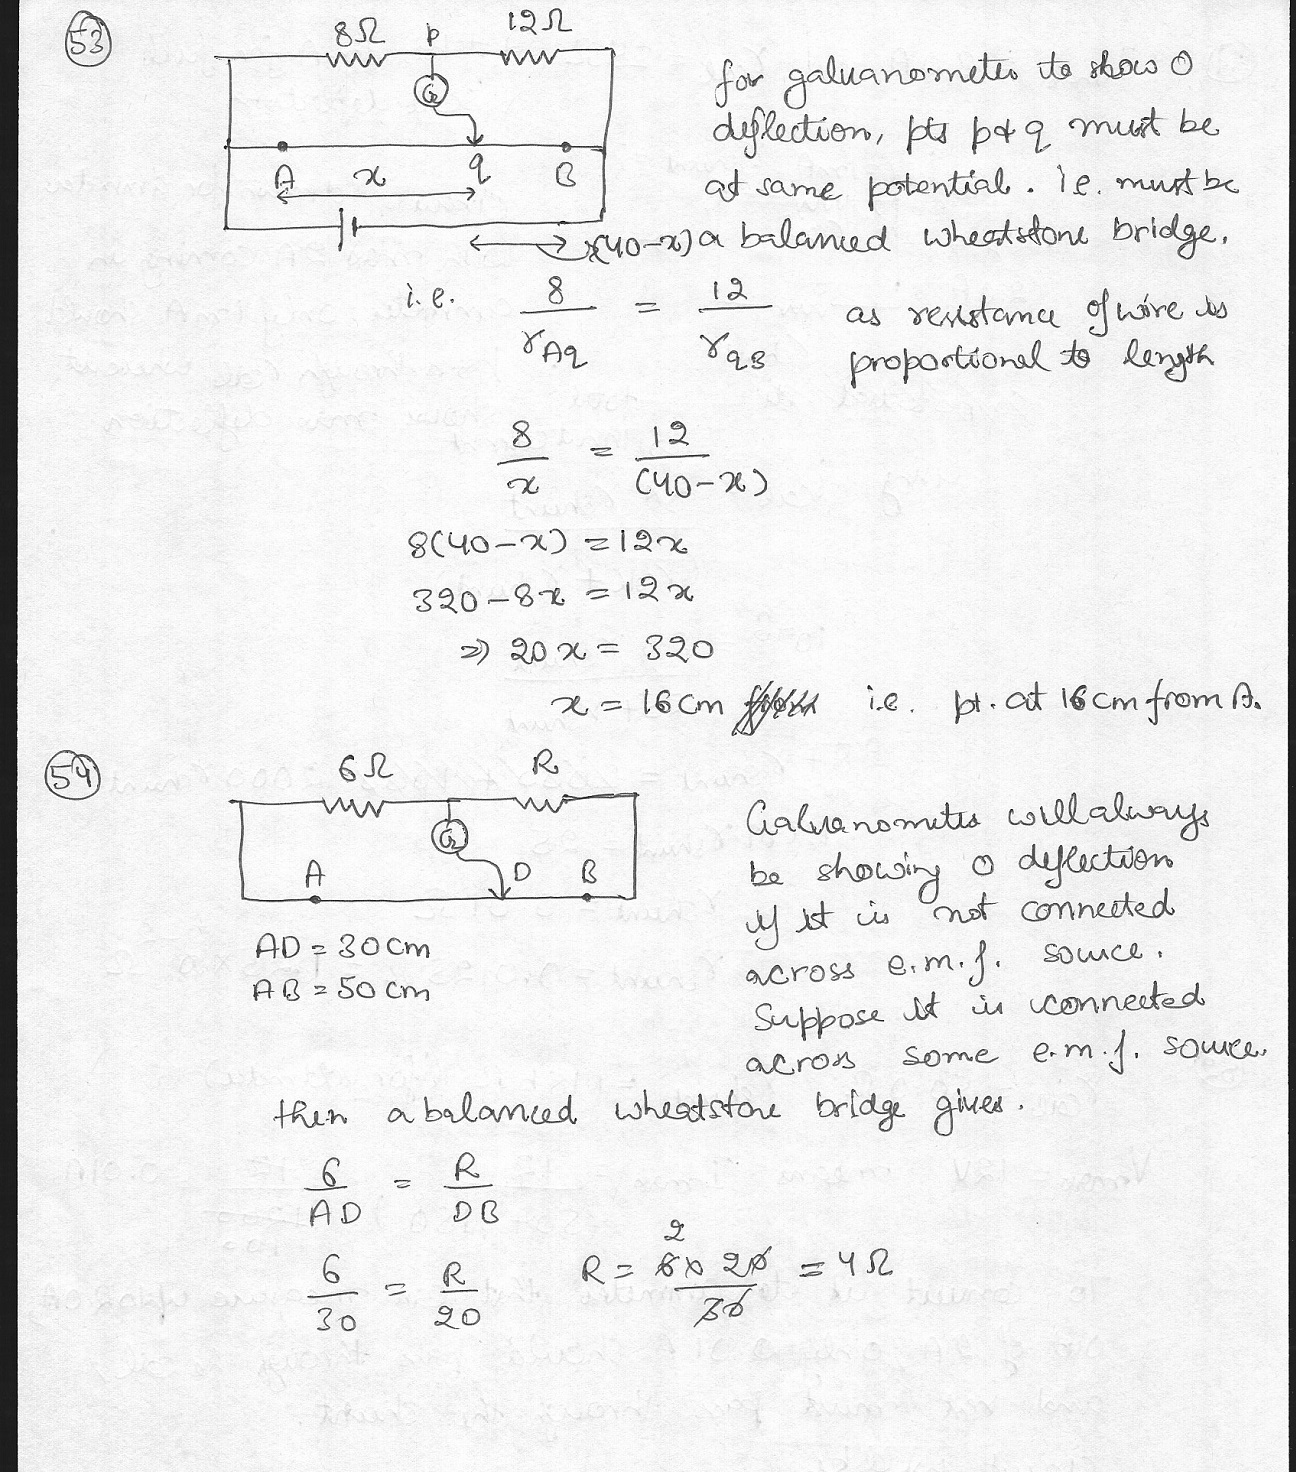 53
8Ω p 12Ω
G
A x q B
(40-x)
for galvanometer to show 0
deflection, pts p & q must be
at same potential. i.e. must be
a balanced wheatstone bridge.
i.e. 8/rAq = 12/rqB as resistance of wire is
proportional to length
8/x = 12/(40-x)
8(40-x) = 12x
320-8x = 12x
⇒ 20x = 320
x = 16cm i.e. pt. at 16cm from A.
54
6Ω R
G
A D B
AD = 30cm
AB = 50cm
Galvanometer will always
be showing 0 deflection
if it is not connected
across e.m.f. source.
Suppose it is connected
across some e.m.f. source.
then a balanced wheatstone bridge gives.
6/AD = R/DB
6/30 = R/20 R = 6 x 20/30 = 4Ω
2